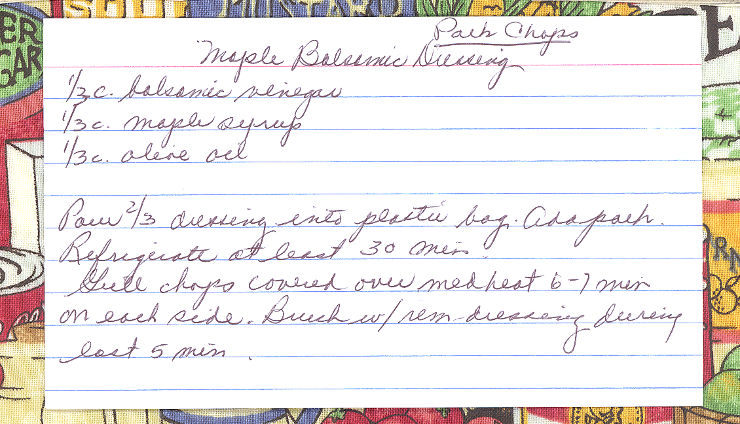 Pork Chops
Maple Balsamic Dressing
1/3 c. balsamic vinegar
1/3 c. maple syrup
1/3 c. olive oil
Pour 2/3 dressing into plastic bag. Add pork.
Refrigerate at least 30 min.
Grill chops covered over med heat 6-7 min
on each side. Brush w/ rem dressing during
last 5 min.